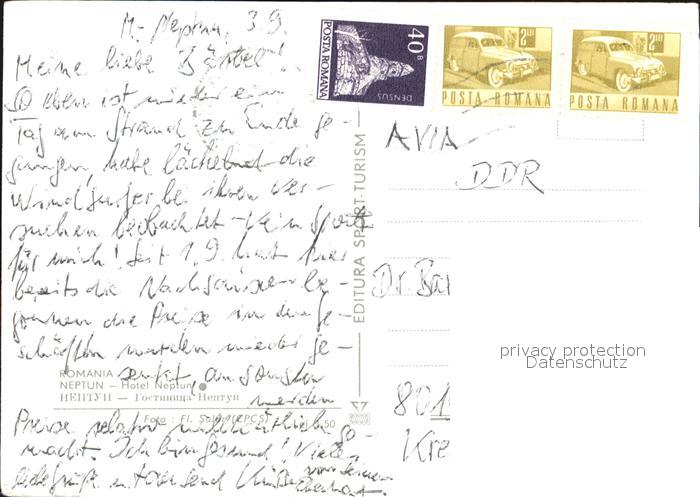 M.-Neptun, 3.9.
Meine liebe Bärbel!
So eben ist wieder ein
Tag am Strand zu Ende ge-
gangen, habe lächelnd die
Windsurfer bei ihren Ver-
suchen beobachtet - kein Sport
für mich! Seit 1.9. hat hier
bereits die Nachsaison be-
gonnen die Preise in den Ge-
schäften wurden wieder ge-
senkt, ansonsten
werden
Preise relativ willkürlich ge-
macht. Ich bin gesund! Viele
liebe Grüße u. tausend Küsse
von Deinem
Eberhart.
ROMANIA
NEPTUN - Hotel Neptun
НЕПТУН - Гостиница Нептун
Foto : Fl.
EDITURA SPORT-TURISM
40 B
POSTA ROMANA
DENSUS
2 LEI
POSTA ROMANA
2 LEI
POSTA ROMANA
AVIA
DDR
Dr. Bär
801
Kre
privacy protection
Datenschutz